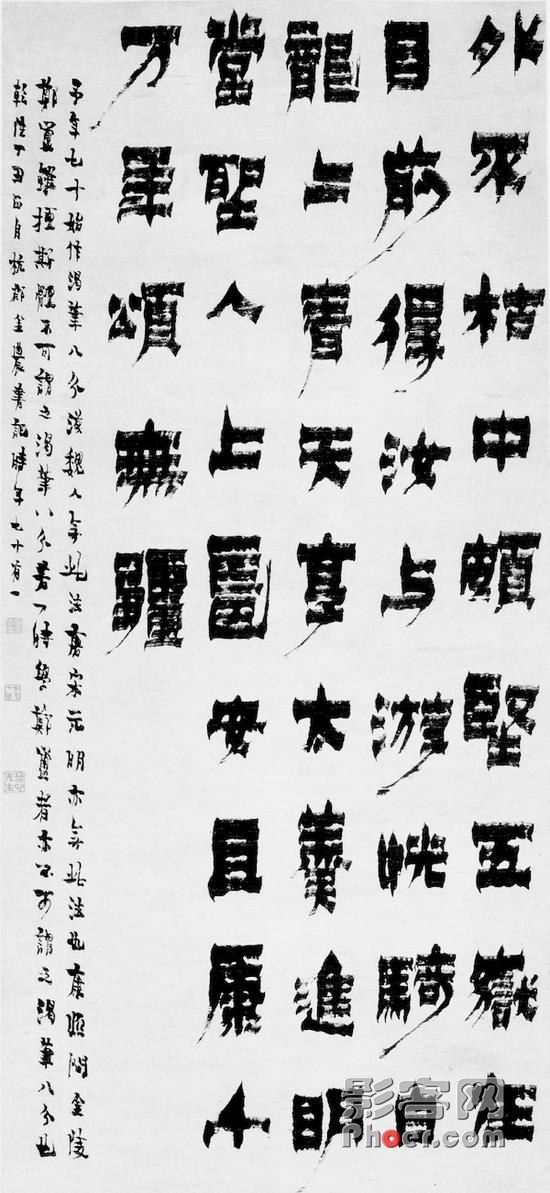 外枯中頗堅五嶽在
目前得汝与游恍騎青
龍上書天臺太羹進明
堂聖人上圖安且康千
万年頌無疆
予年七十始作渴筆八分漢魏人無此法唐宋元明亦無此法也康熙間金陵
鄭簠雖擅斯體不可謂之渴筆八分若一時學鄭簠者亦不可謂之渴筆八分也
乾隆丁丑正月杭郡金農筆記時年七十有一
影客网
Phoer.com